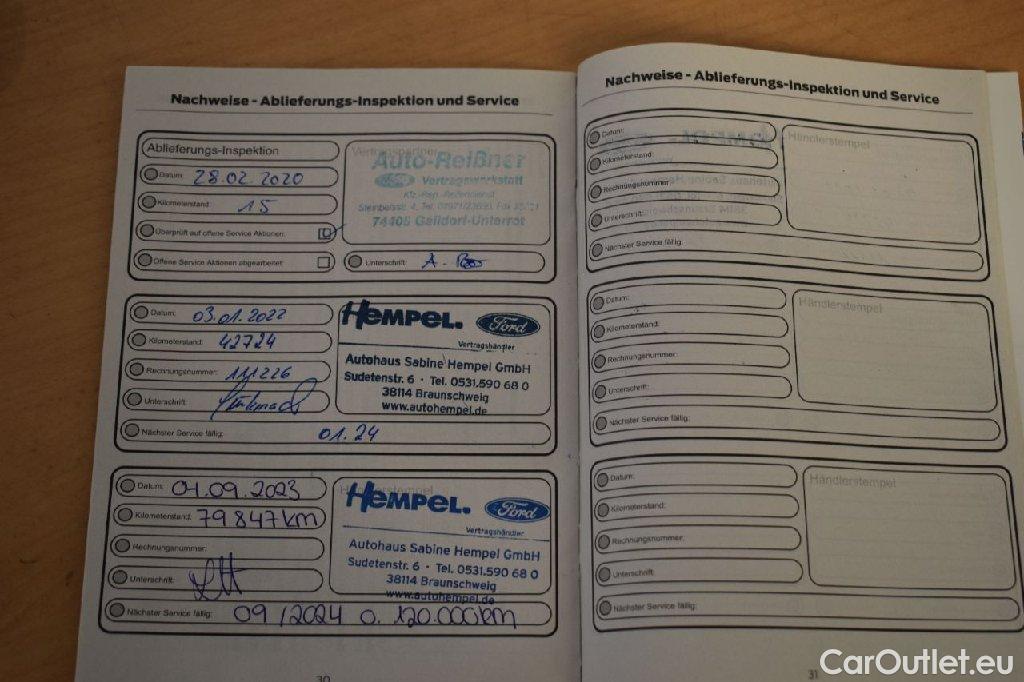 Nachweise - Ablieferungs-Inspektion und Service
Ablieferungs-Inspektion
Datum: 28.02.2020
Kilometerstand: 15
Überprüft auf offene Service Aktionen:
Offene Service Aktionen abgearbeitet:
Vertragspartner
Auto-Reißner
Ford Vertragswerkstatt
74405 Gaildorf-Unterrot
Unterschrift:
Datum: 03.01.2022
Kilometerstand: 42724
Rechnungsnummer:
Unterschrift:
Nächster Service fällig: 01.24
HEMPEL. Ford
Vertragshändler
Autohaus Sabine Hempel GmbH
Sudetenstr. 6 · Tel. 0531.590 68 0
38114 Braunschweig
www.autohempel.de
Datum: 01.09.2023
Kilometerstand: 79847 km
Rechnungsnummer:
Unterschrift:
Nächster Service fällig: 09/2024 o. 120.000km
Händlerstempel
HEMPEL. Ford
Vertragshändler
Autohaus Sabine Hempel GmbH
Sudetenstr. 6 · Tel. 0531.590 68 0
38114 Braunschweig
www.autohempel.de
30
Nachweise - Ablieferungs-Inspektion und Service
Datum:
Kilometerstand:
Rechnungsnummer:
Unterschrift:
Nächster Service fällig:
Händlerstempel
Datum:
Kilometerstand:
Rechnungsnummer:
Unterschrift:
Nächster Service fällig:
Händlerstempel
Datum:
Kilometerstand:
Rechnungsnummer:
Unterschrift:
Nächster Service fällig:
Händlerstempel
31
CarOutlet.eu